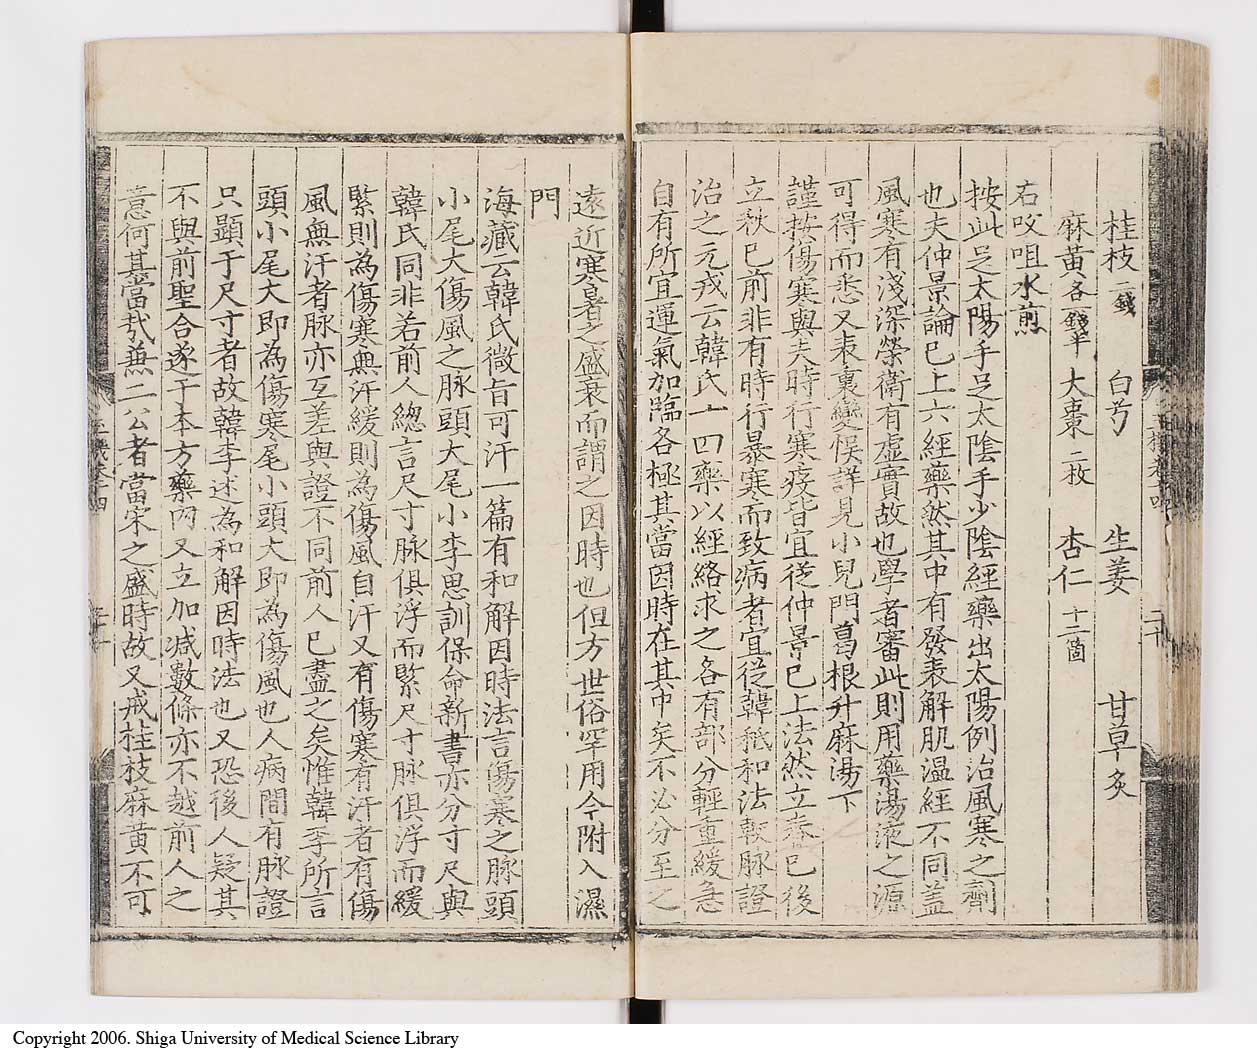 桂枝一錢 白芍 生姜 甘草炙
麻黄各一錢半 大棗二枚 杏仁十二箇
右㕮咀水煎
按此足太陽手足太陰手少陰經藥出太陽例治風寒之劑
也夫仲景論已上六經藥然其中有發表解肌温經不同盖
風寒有淺深榮衛有虛實故也學者審此則用藥湯液之源
可得而悉又表裏變悮詳見小兒門葛根升麻湯下
謹按傷寒與夫時行寒疫皆宜從仲景已上法然立春已後
立秋已前非有時行暴寒而致病者宜從韓祗和法較脉證
治之元戎云韓氏十四藥以經絡求之各有部分輕重緩急
自有所宜運氣加臨各極其當因時在其中矣不必分至之
遠近寒暑之盛衰而謂之因時也但方世俗罕用今附入濕
門
海藏云韓氏微旨可汗一篇有和解因時法言傷寒之脉頭
小尾大傷風之脉頭大尾小李思訓保命新書亦分寸尺與
韓氏同非若前人總言尺寸脉俱浮而緊尺寸脉俱浮而緩
緊則為傷寒無汗緩則為傷風自汗又有傷寒有汗者有傷
風無汗者脉亦互差與證不同前人已盡之矣惟韓李所言
頭小尾大即為傷寒尾小頭大即為傷風也人病間有脉證
只顯于尺寸者故韓李述為和解因時法也又恐後人疑其
不與前聖合遂于本方藥內又立加減數條亦不越前人之
意何其當哉兼二公者當宋之盛時故又戒桂枝麻黄不可